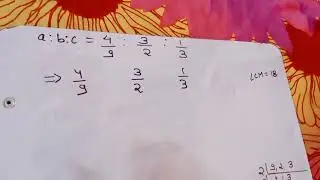 a:b:c = 4/9 : 3/2 : 1/3
⇒ 4/9 3/2 1/3
LCM = 18
2 | 9, 2 3